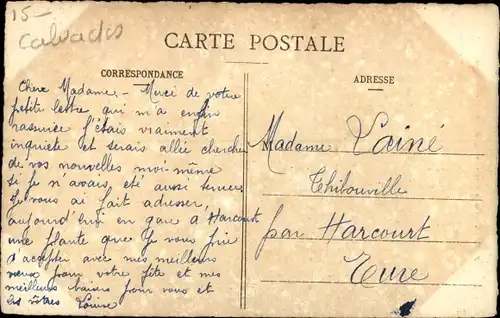 15-
Calvados
CARTE POSTALE
CORRESPONDANCE
ADRESSE
Chere Madame, - Merci de votre
petite lettre qui m'a enfin
rassurée J'étais vraiment
inquiète et serais allée chercher
de vos nouvelles moi-même
si je n'avais, été aussi
Je vous ai fait adresser,
aujourd'hui en gare d'Harcourt
une plante que je vous prie
d'accepter avec mes meilleurs
vœux pour votre fête et mes
meilleurs baisers pour vous et
les vôtres Louise
Madame Lainé
Thibouville
par Harcourt
Eure